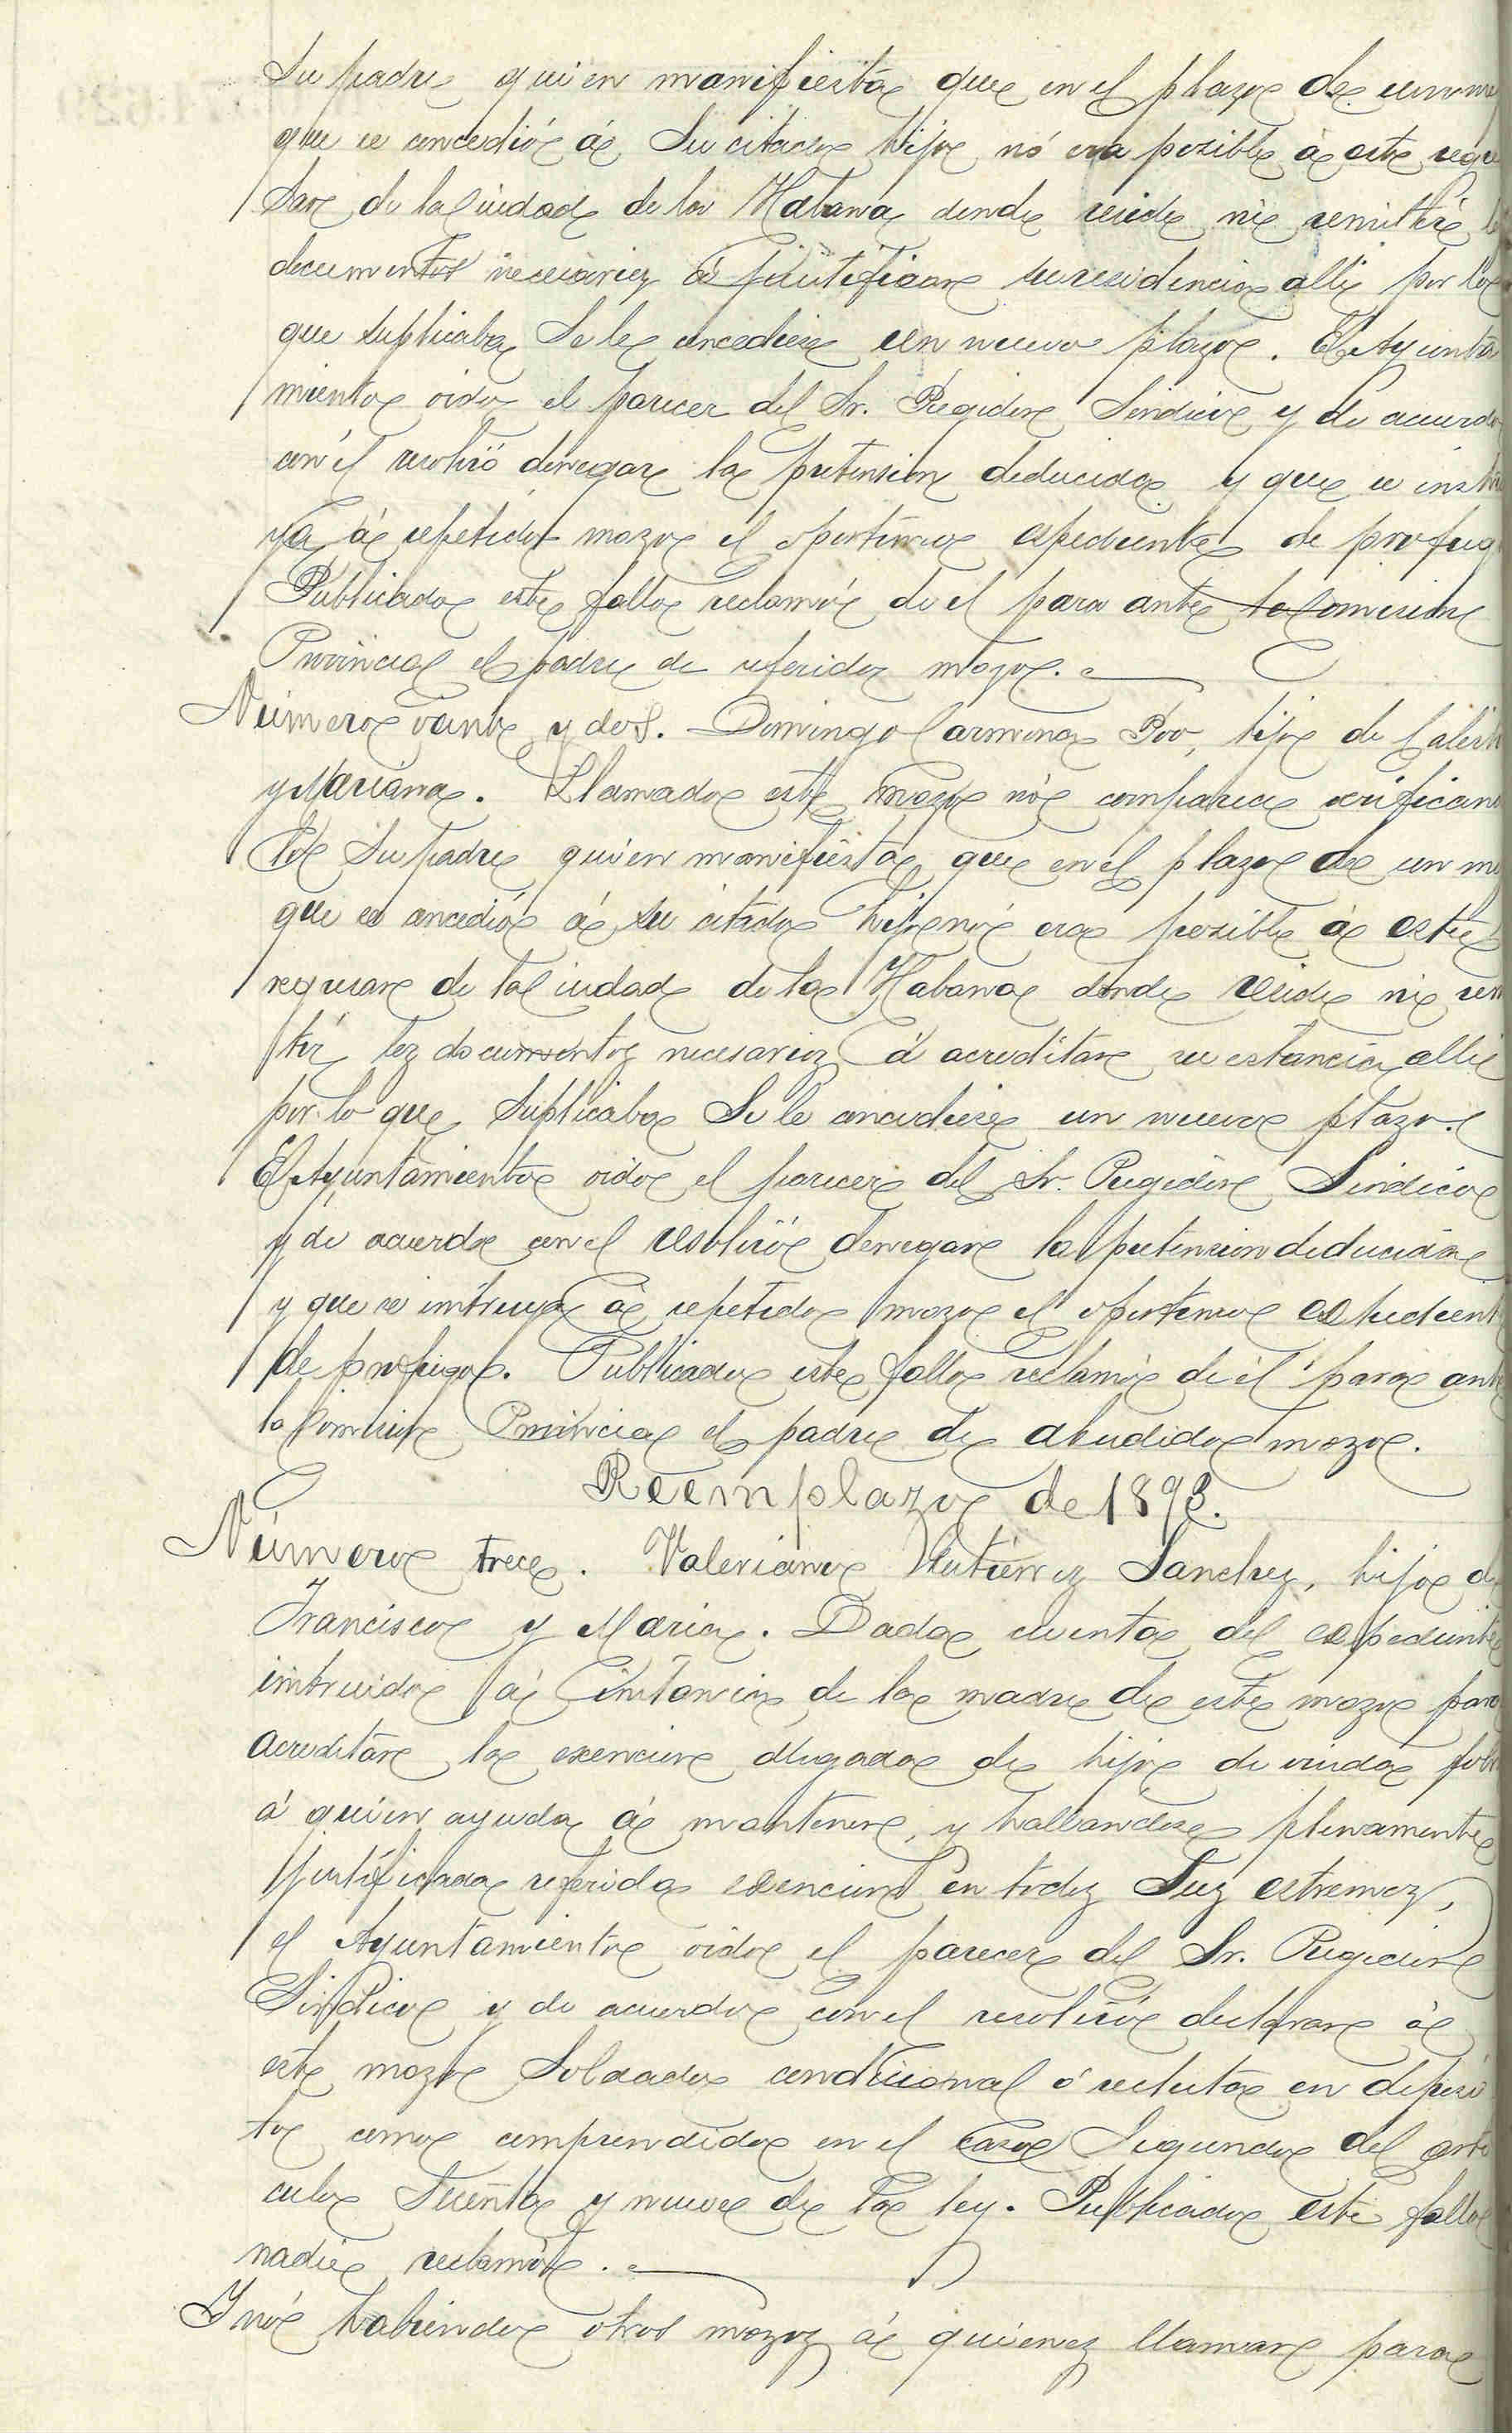 su padre quien manifiesta que en el plazo de un me
que se concedió á su citado hijo no era posible á este regre
sar de la Ciudad de la Habana donde reside ni remitir
documentos necesarios á justificar su residencia alli por lo
que suplicaba se le concediese un nuevo plazo. El Ayunta
miento oido el parecer del Sr. Regidor Sindico y de acuerdo
con él resolvió denegar la pretension deducida y que se instru
ya á repetido mozo el oportuno espediente de profug
Publicado este fallo reclamó de el para ante la Comision
Provincial el padre de referido mozo.
Número veinte y dos. Domingo Carmona Poo, hijo de Calist
y Mariana. Llamado este mozo nó comparece verifican
lo su padre quien manifiesta que en el plazo de un me
que se concedió á su citado hijo nó era posible á este
regresar de la Ciudad de la Habana donde reside ni rem
tir los documentos necesarios á acreditar su estancia alli
por lo que suplicaba se le concediese un nuevo plazo.
El Ayuntamiento oido el parecer del Sr. Regidor Sindico
y de acuerdo con el resolvió denegar la pretension deducida
y que se instruya á repetido mozo el oportuno espedient
de profugo. Publicado este fallo reclamó de él para ant
la Comision Provincial el padre de aludido mozo.
Reemplazo de 1893.
Número trece. Valeriano Gutierrez Sanchez, hijo d
Francisco y Maria. Dada cuenta del espediente
instruido á instancia de la madre de este mozo para
acreditar la exencion alegada de hijo de viuda pob
á quien ayuda á mantener, y hallandose plenamente
justificada referida exencion en todos sus estremos,
el Ayuntamiento oido el parecer del Sr. Regidor
Sindico y de acuerdo con el resolvió declarar á
este mozo Soldado condicional ó recluta en deposi
to como comprendido en el caso segundo del arti
culo sesenta y nueve de la ley. Publicado este fallo
nadie reclamó.
Y nó habiendo otros mozos á quienes llamar para